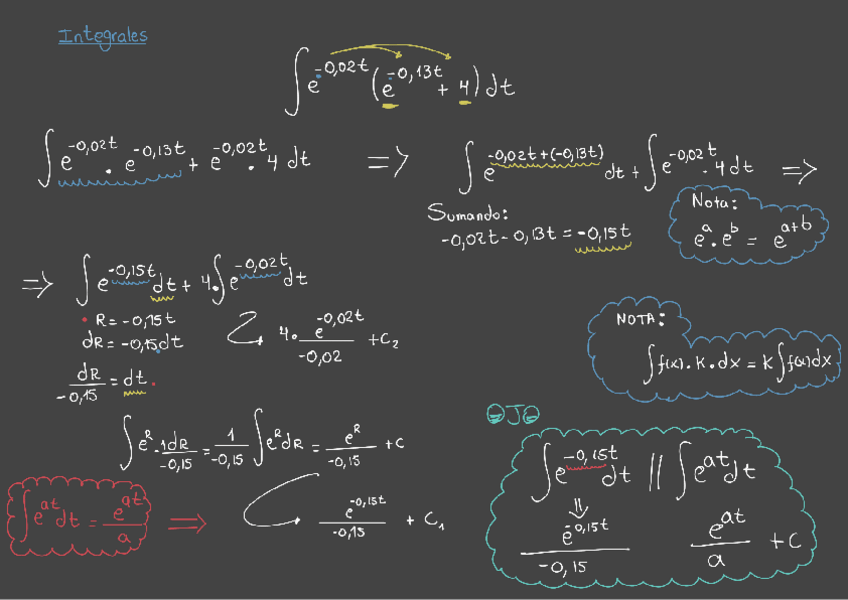 Integrales
∫e^(-0,02t) (e^(-0,13t) + 4) dt
∫e^(-0,02t) · e^(-0,13t) + e^(-0,02t) · 4 dt ⇒ ∫e^(-0,02t+(-0,13t)) dt + ∫e^(-0,02t) · 4 dt ⇒
Sumando:
-0,02t - 0,13t = -0,15t
Nota:
e^a · e^b = e^(a+b)
⇒ ∫e^(-0,15t) dt + 4·∫e^(-0,02t) dt
R = -0,15t
dR = -0,15dt
dR/-0,15 = dt
4 · e^(-0,02t)/-0,02 + C₂
NOTA:
∫f(x)·K·dx = K∫f(x)dx
∫e^R · 1dR/-0,15 = 1/-0,15 ∫e^R dR = e^R/-0,15 + C
∫e^(at) dt = e^(at)/a ⇒ e^(-0,15t)/-0,15 + C₁
OJO
∫e^(-0,15t) dt // ∫e^(at) dt
⇓
e^(-0,15t)/-0,15 e^(at)/a + C